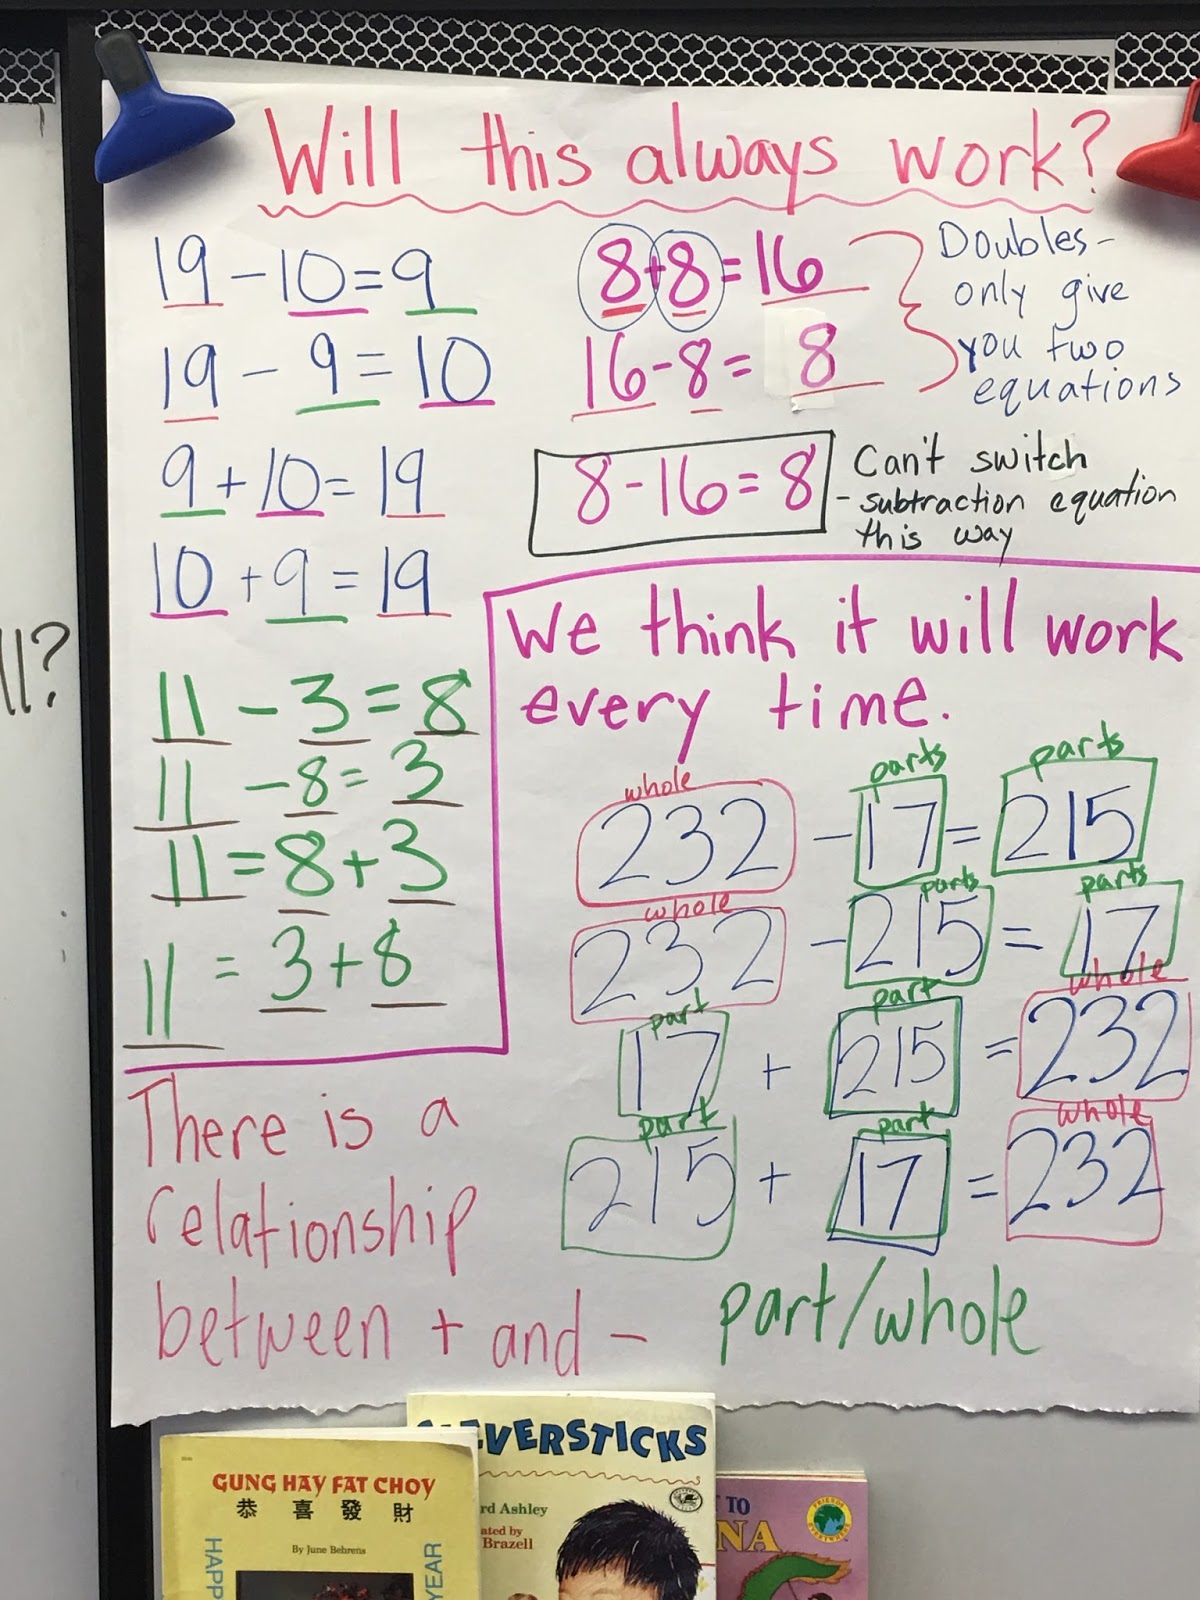 Will this always work?
19 - 10 = 9
19 - 9 = 10
9 + 10 = 19
10 + 9 = 19
11 - 3 = 8
11 - 8 = 3
11 = 8 + 3
11 = 3 + 8
8 + 8 = 16
16 - 8 = 8
Doubles -
only give
you two
equations
8 - 16 = 8
Can't switch
- subtraction equation
this way
We think it will work
every time.
whole parts parts
232 - 17 = 215
whole parts parts
232 - 215 = 17
part part whole
17 + 215 = 232
part part whole
215 + 17 = 232
There is a
relationship
between + and -
part/whole
ll?
GUNG HAY FAT CHOY
恭喜發財
By June Behrens
YEAR
VERSTICKS
rd Ashley
ated by
Brazell
TO
NA